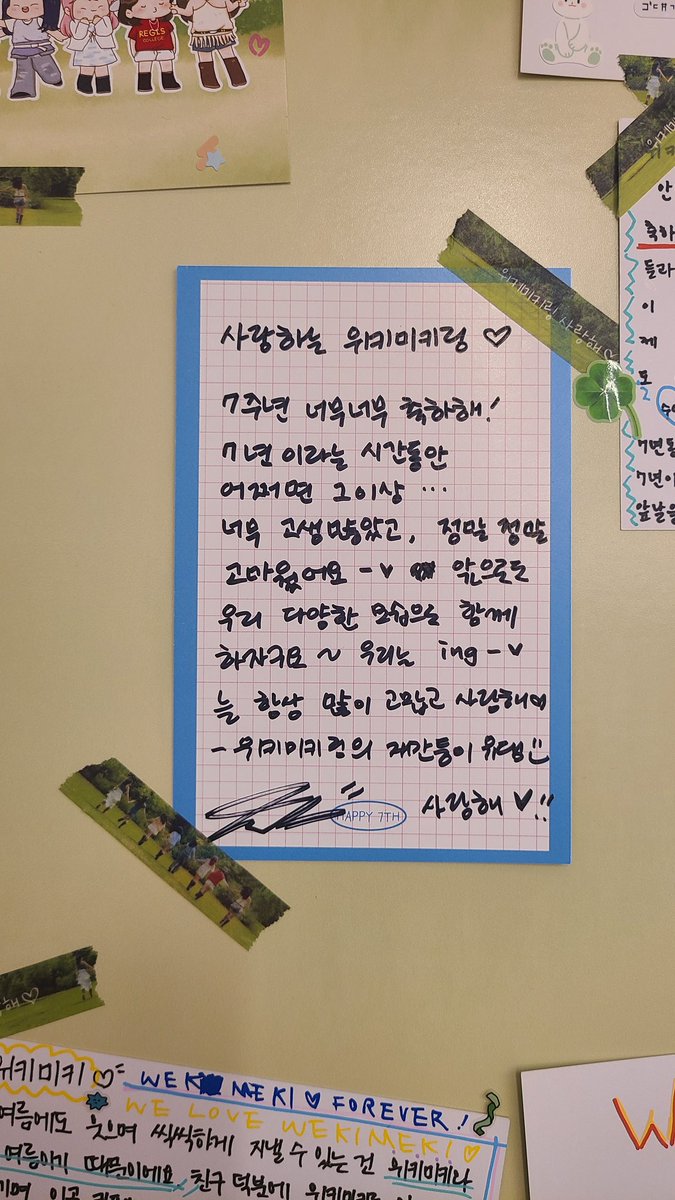 REGIS
COLLEGE
위키미키링 사랑해♡
사랑하는 위키미키링 ♡
7주년 너무너무 축하해!
7년이라는 시간동안
어쩌면 그이상 ...
너무 고생많았고, 정말 정말
고마웠어요 -♥ 앞으로도
우리 다양한 모습으로 함께
하자구요 ~ 우리는 ing -♥
늘 항상 많이 고맙고 사랑해♡
- 위키미키링의 재간둥이 유댕!!
사랑해 ♥!!
HAPPY 7TH
안
축하
들라
이
제
도
7년동
7년이
앞날을
위키미키 ♡
WEKI MEKI ♡ FOREVER!
WE LOVE WEKIMEKI ♡
여름에도 웃으며 씩씩하게 지낼 수 있는 건 위키미키라
여름아기 때문이에요 친구 덕분에 위키미키를